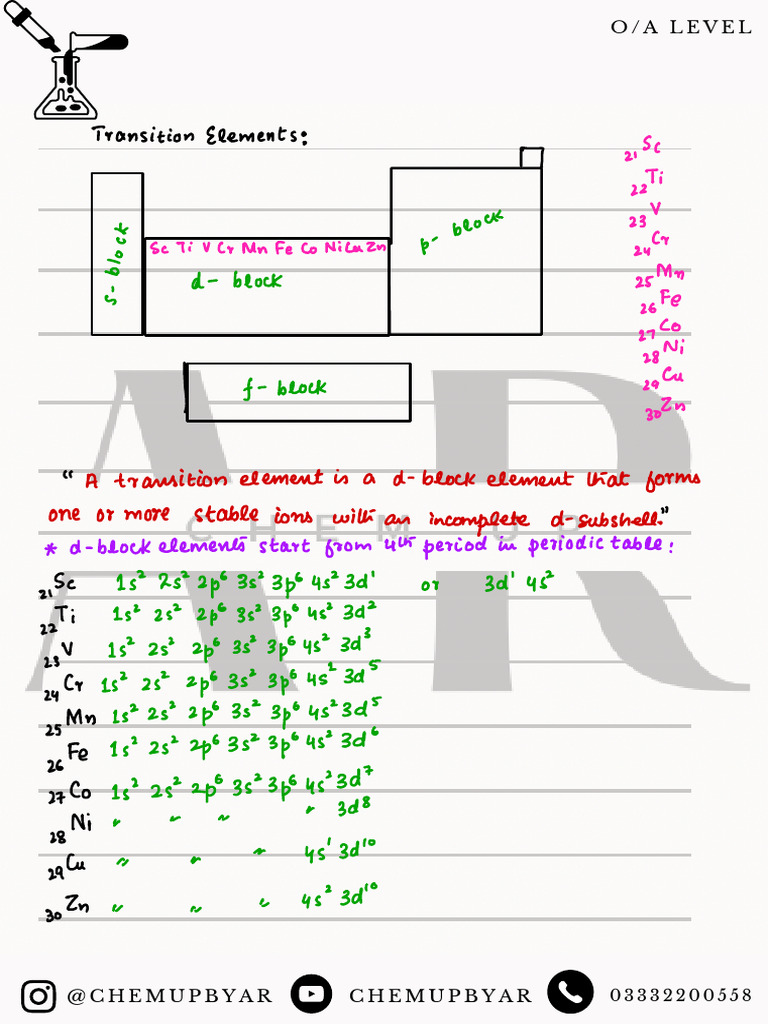 O/A LEVEL
Transition Elements:
s-block
Sc Ti V Cr Mn Fe Co Ni Cu Zn
d-block
p-block
f-block
₂₁Sc
₂₂Ti
₂₃V
₂₄Cr
₂₅Mn
₂₆Fe
₂₇Co
₂₈Ni
₂₉Cu
₃₀Zn
“ A transition element is a d-block element that forms
one or more stable ions with an incomplete d-subshell.”
CHEM UP
AR
* d-block elements start from 4th period in periodic table:
₂₁Sc 1s² 2s² 2p⁶ 3s² 3p⁶ 4s² 3d¹ or 3d¹ 4s²
₂₂Ti 1s² 2s² 2p⁶ 3s² 3p⁶ 4s² 3d²
₂₃V 1s² 2s² 2p⁶ 3s² 3p⁶ 4s² 3d³
₂₄Cr 1s² 2s² 2p⁶ 3s² 3p⁶ 4s¹ 3d⁵
₂₅Mn 1s² 2s² 2p⁶ 3s² 3p⁶ 4s² 3d⁵
₂₆Fe 1s² 2s² 2p⁶ 3s² 3p⁶ 4s² 3d⁶
₂₇Co 1s² 2s² 2p⁶ 3s² 3p⁶ 4s² 3d⁷
₂₈Ni " " " " 3d⁸
₂₉Cu " " " 4s¹ 3d¹⁰
₃₀Zn " " " 4s² 3d¹⁰
@CHEMUPBYAR CHEMUPBYAR 03332200558